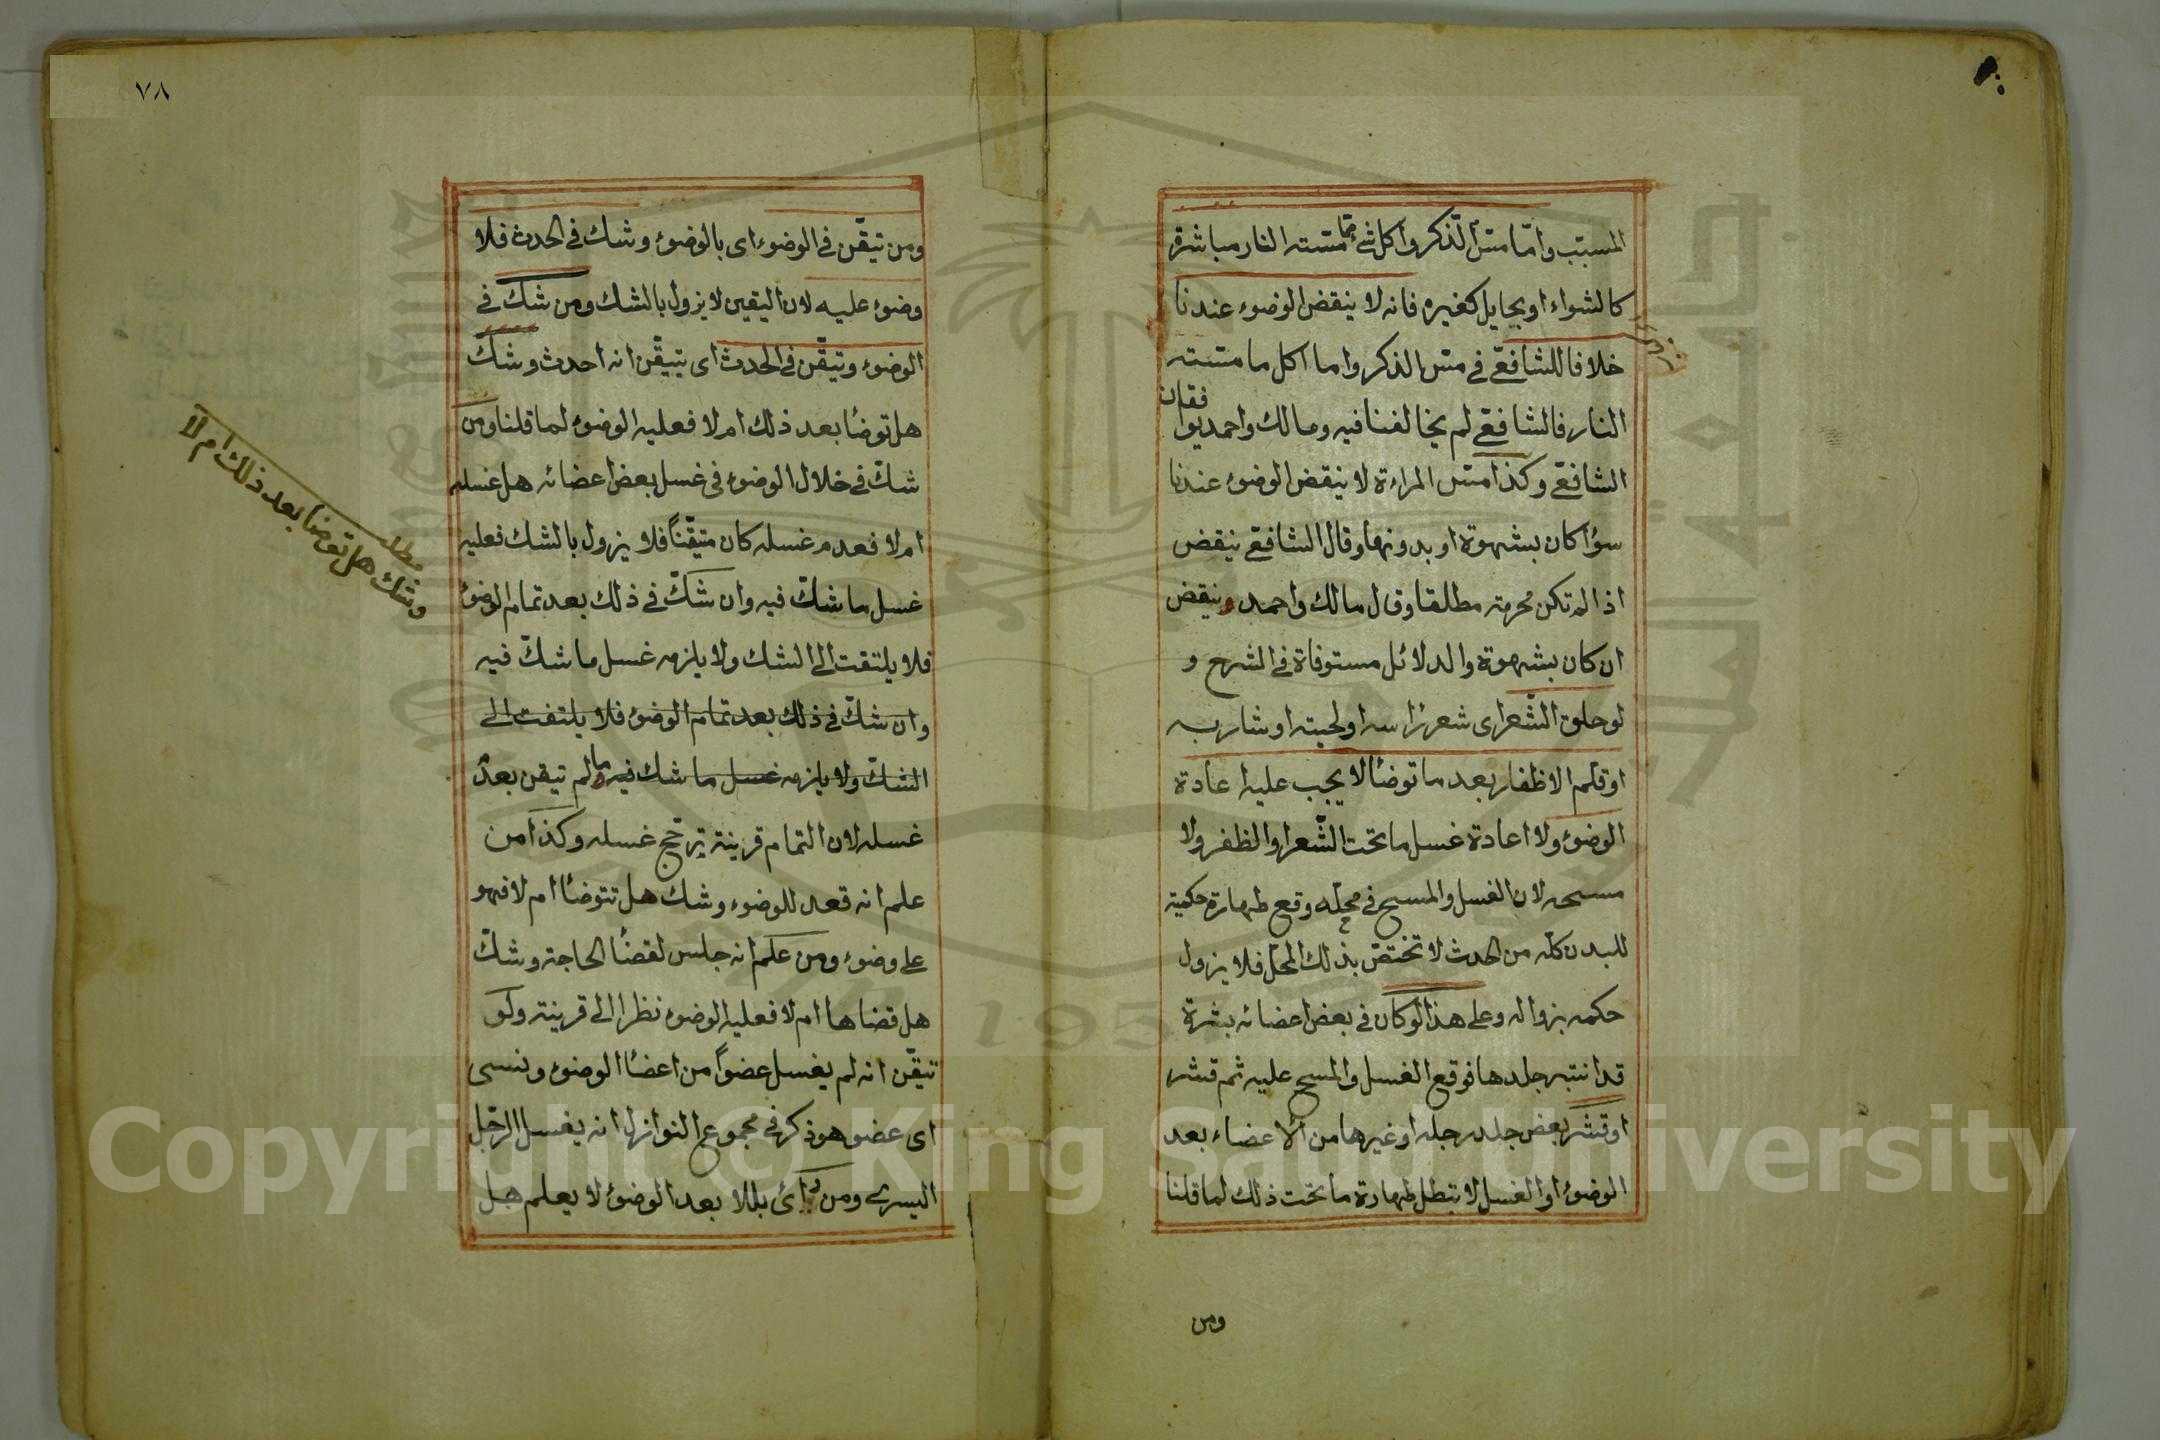 المسبّب وامّا مسّ الذكر واكل شئ ممّا مسّته النار مباشرة
كالشواء او بحايل كغيره فانه لا ينقض الوضوء عندنا
خلافا للشافعّي في مسّ الذكر واما اكل ما مسّته
النار فالشافعّي لم يخالفنا فيه ومالك واحمد يوافقان
الشافعّي وكذا مسّ المراءة لا ينقض الوضوء عندنا
سوٴا كان بشهوة او بدونها وقال الشافعّي ينقض
اذا لم تكن محرمته مطلقا وقال مالك واحمد وينقض
ان كان بشهوة والدلائل مستوفاة في الشرح و
لو حلق الشّعر اى شعر رٴاسه او لحيته او شاربه
او قلّم الاظفار بعد ما توضّأ لا يجب عليه اعادة
الوضوء ولا اعادة غسل ما تحت الشّعر او الظفر ولا
مسحه لان الغسل والمسح في محلّه وقع طهارة حكمية
للبدن كلّه من الحدث لا تختصّ بذلك المحلّ فلا يزول
حكمه بزواله وعلى هذا لو كان في بعض اعضائه بثرة
قد انتبر جلدها فوقع الغسل والمسح عليه ثم قشر
او قشر بعض جلد رجله او غيرها من الاعضاء بعد
الوضوء او الغسل لا تبطل طهارة ما تحت ذلك لما قلنا
ومن
٧٨
ومن تيقّن في الوضوء اى بالوضوء وشك في الحدث فلا
وضوء عليه لان اليقين لا يزول بالشك ومن شكّ في
الوضوء وتيقّن في الحدث اى تيقّن انه احدث وشكّ
هل توضّأ بعد ذلك ام لا فعليه الوضوء لما قلنا ومن
شكّ في خلال الوضوء في غسل بعض اعضائه هل غسله
ام لا فعدم غسله كان متيقّناً فلا يزول بالشك فعليه
غسل ما شكّ فيه وان شكّ في ذلك بعد تمام الوضوء
فلا يلتفت الى الشك ولا يلزمه غسل ما شكّ فيه
وان شكّ في ذلك بعد تمام الوضوء فلا يلتفت الى
الشكّ ولا يلزمه غسل ما شك فيه ما لم تيقن بعدم
غسله لان التمام قرينة ترجّح غسله وكذا من
علم انه قعد للوضوء وشك هل تتوضّأ ام لا فهو
على وضوء ومن علم انه جلس لقضٴا الحاجة وشكّ
هل قضاها ام لا فعليه الوضوء نظرا الى قرينته ولو
تيقّن انه لم يغسل عضواً من اعضٴا الوضوء ونسى
اى عضو هو ذكر في مجموع النوازل انه يغسل الرّجل
اليسرى ومن رٴاى بللا بعد الوضوء لا يعلم هل
مطلب
وشك هل توضأ بعد ذلك ام لا